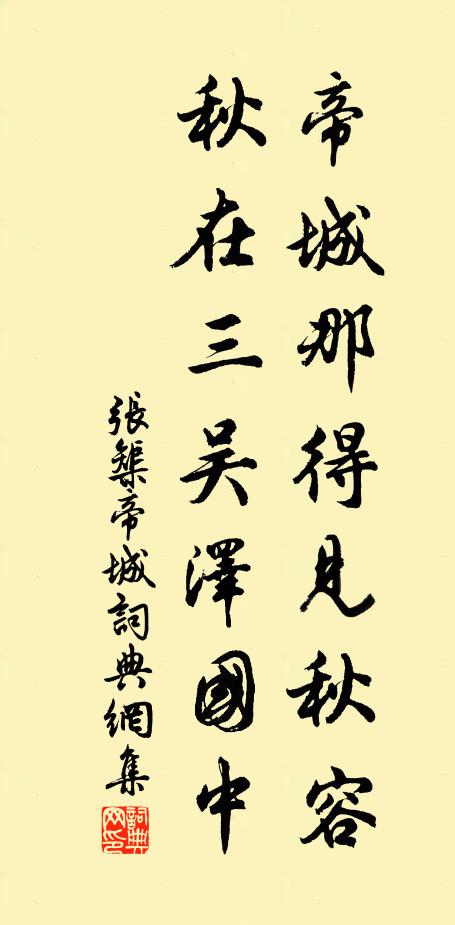 帝城那得見秋容
秋在三吴澤國中
張榘帝城詞典網集
詞典網印